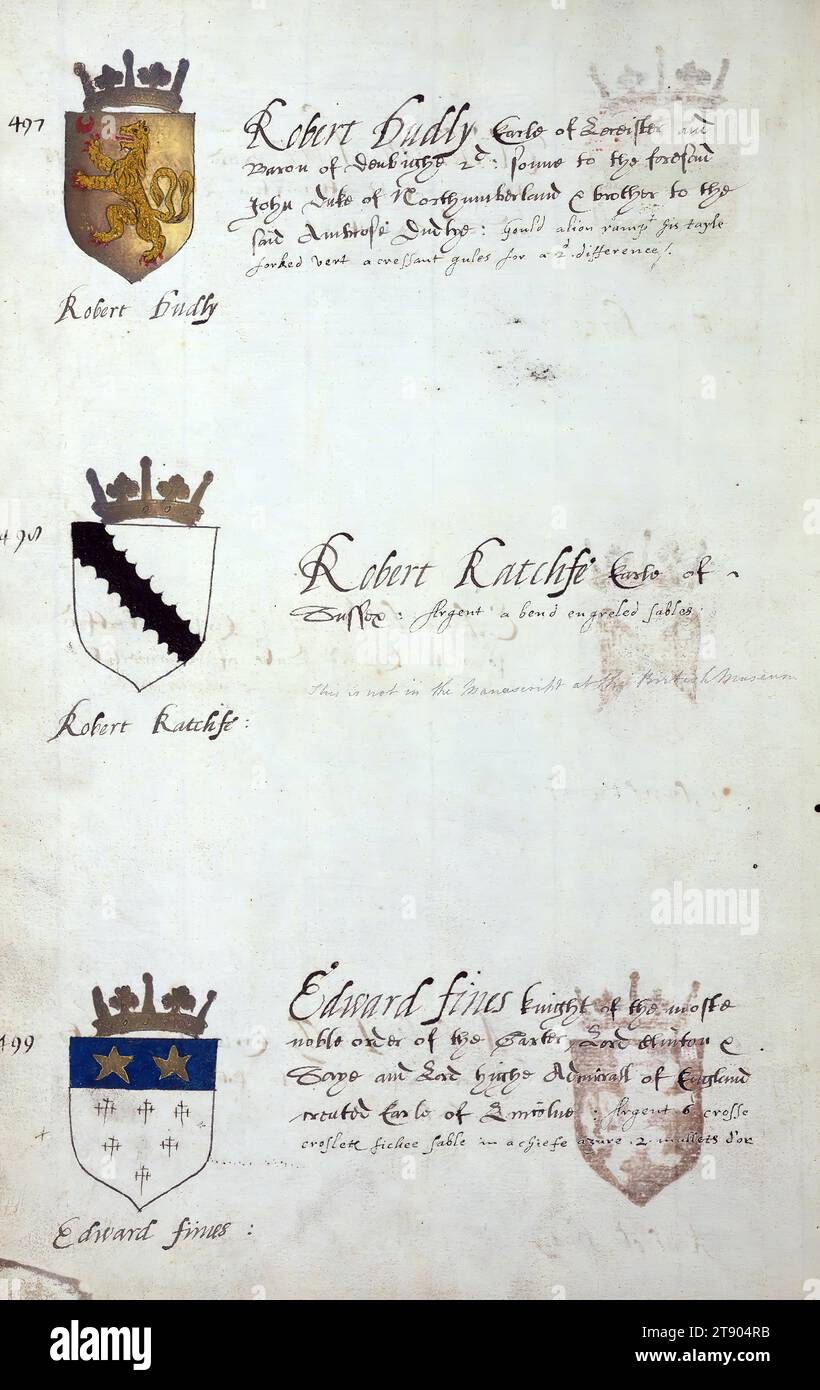 497
Robert Dudly Earle of Leceister and
Baron of Denbighe 2d: sonne to the foresaid
John Duke of Northumberland & brother to the
said Ambrose Dudlye: Gould a lion rampt his tayle
forked vert a cressant gules for a 2 difference/.
Robert Dudly
498
Robert Ratclife Earle of
Sussex: Argent a bend engreled sables:
This is not in the Manuscript at the British Museum
Robert Ratclife:
499
Edward fines knight of the moste
noble order of the Garter, Lord Clinton &
Saye and Lord highe Admirall of England
created Earle of Lincolne: Argent 6 crosse
croslete fichee sable in a chiefe azure .2. mullets d'or
Edward fines:
alamy
alamy
alamy
alamy
Image ID: 2T904RB
www.alamy.com